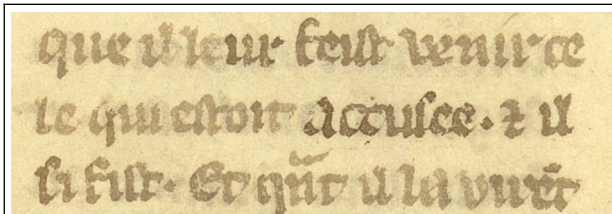 que il leur feist venir ce
le qui estoit accusee. ⁊ il
si fist. Et qñt il la virẽt